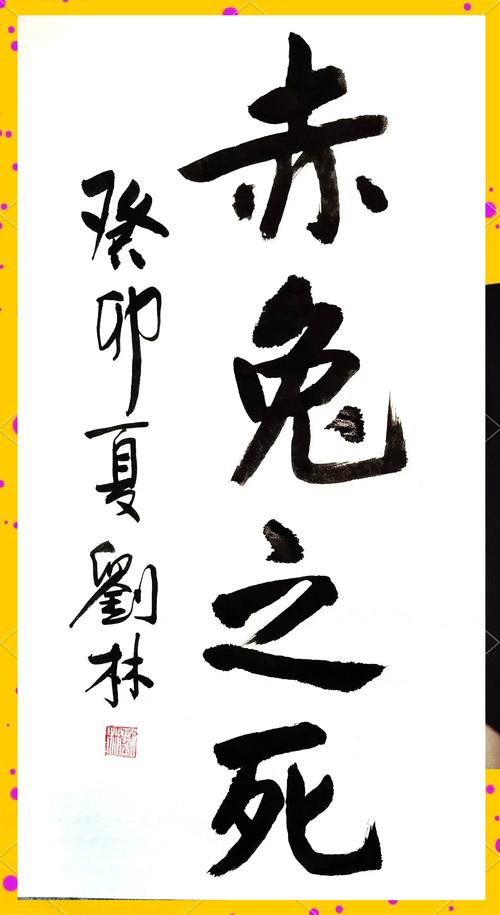 赤兔之死
癸卯夏劉林